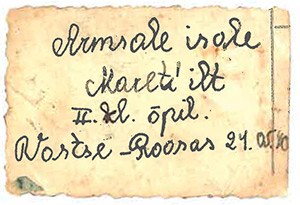 Armsale isale
Marcti ilt
II. kl. õpil.
Vastse-Roosas 21.